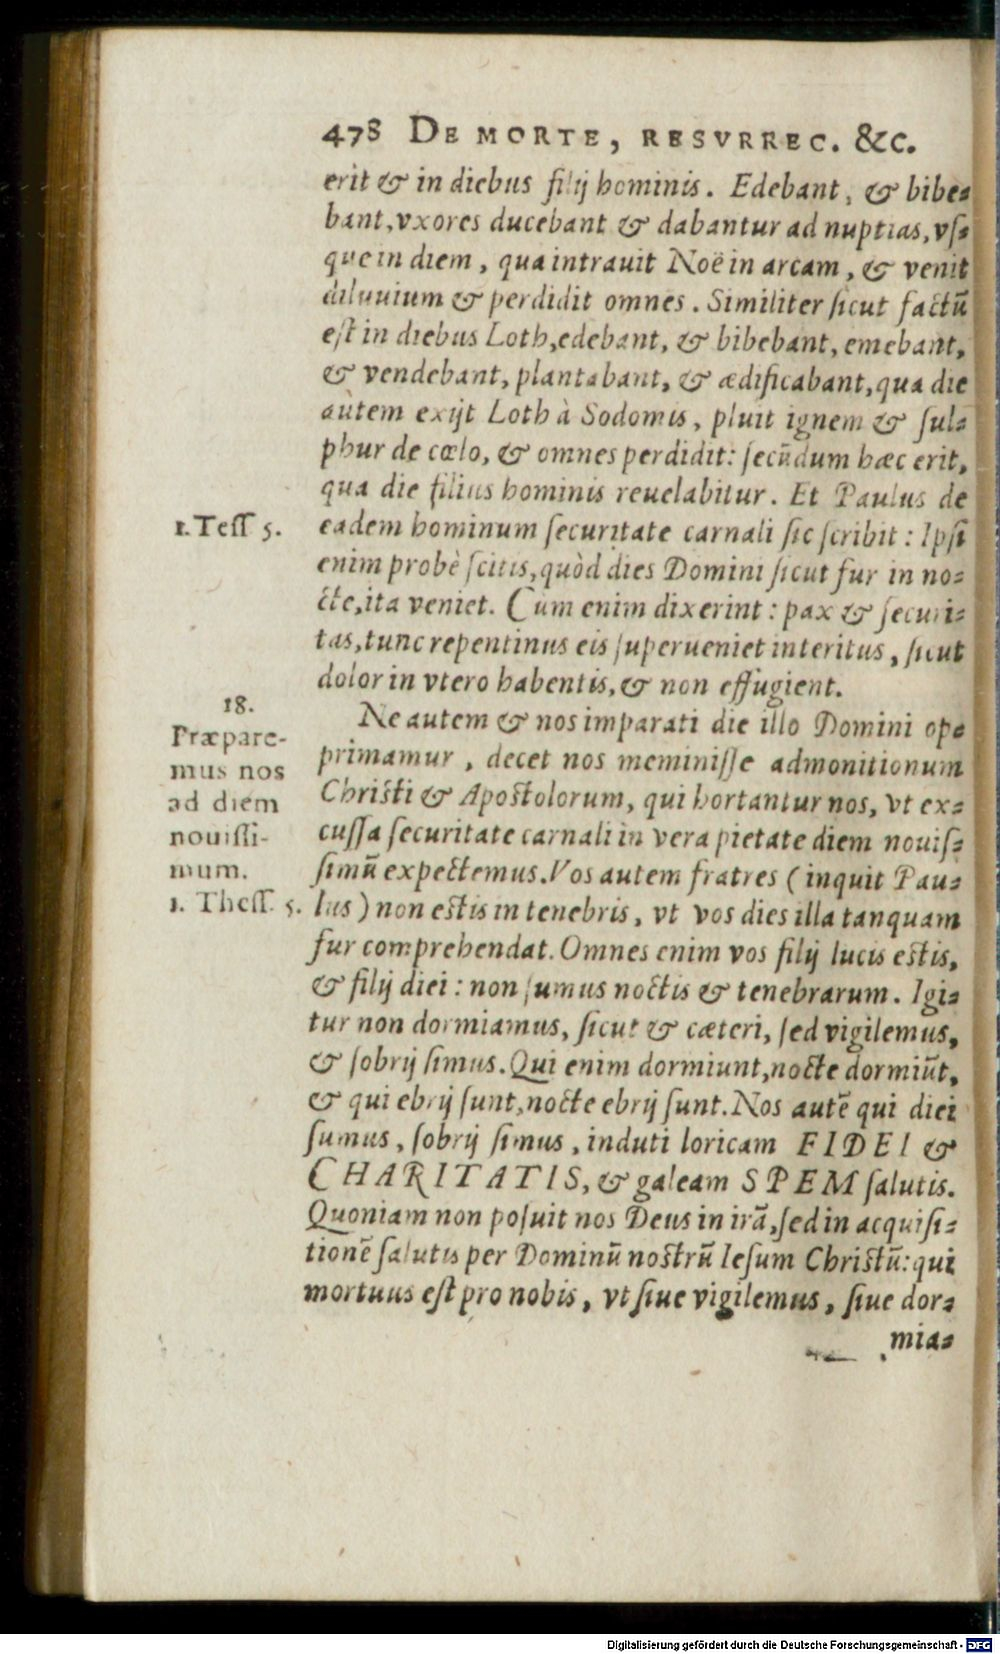 478 DE MORTE, RESVRREC. &c.
erit & in diebus filij hominis. Edebant, & bibe-
bant, vxores ducebant & dabantur ad nuptias, vſ-
que in diem, qua intrauit Noë in arcam, & venit
diluuium & perdidit omnes. Similiter ſicut factū
eſt in diebus Loth, edebant, & bibebant, emebant,
& vendebant, plantabant, & ædificabant, qua die
autem exijt Loth à Sodomis, pluit ignem & ſul-
phur de cœlo, & omnes perdidit: ſecūdum hæc erit,
qua die filius hominis reuelabitur. Et Paulus de
1. Teſſ 5.
eadem hominum ſecuritate carnali ſic ſcribit: Ipſi
enim probè ſcitis, quòd dies Domini ſicut fur in no-
cte, ita veniet. Cum enim dixerint: pax & ſecuri-
tas, tunc repentinus eis ſuperueniet interitus, ſicut
dolor in vtero habentis, & non effugient.
18.
Præpare-
mus nos
ad diem
nouiſſi-
mum.
1. Theſſ. 5.
Ne autem & nos imparati die illo Domini opp
primamur, decet nos meminiſſe admonitionum
Chriſti & Apoſtolorum, qui hortantur nos, vt ex-
cuſſa ſecuritate carnali in vera pietate diem nouiſ-
ſimū expectemus. Vos autem fratres (inquit Pau-
lus) non eſtis in tenebris, vt vos dies illa tanquam
fur comprehendat. Omnes enim vos filij lucis eſtis,
& filij diei: non ſumus noctis & tenebrarum. Igi-
tur non dormiamus, ſicut & cæteri, ſed vigilemus,
& ſobrij ſimus. Qui enim dormiunt, nocte dormiūt,
& qui ebrij ſunt, nocte ebrij ſunt. Nos autē qui diei
ſumus, ſobrij ſimus, induti loricam FIDEI &
CHARITATIS, & galeam SPEM ſalutis.
Quoniam non poſuit nos Deus in irā, ſed in acquiſi-
tionē ſalutis per Dominū noſtrū Ieſum Chriſtū: qui
mortuus eſt pro nobis, vt ſiue vigilemus, ſiue dor-
mia-
Digitalisierung gefördert durch die Deutsche Forschungsgemeinschaft - DFG